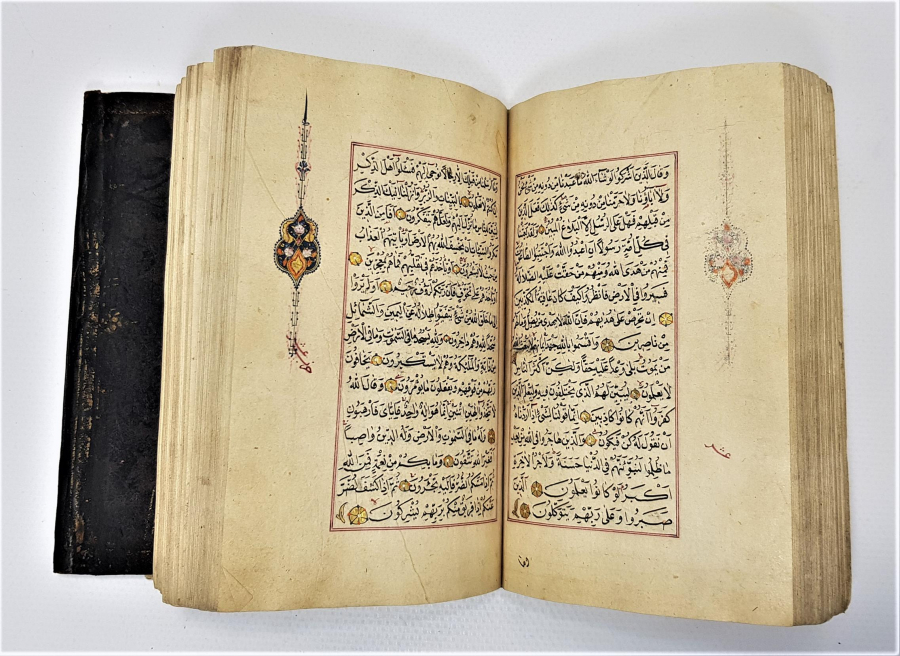 وقال الذين اشركوا لو شاء الله ما عبدنا من دونه من شيء نحن
ولا اباؤنا ولا حرمنا من دونه من شيء كذلك فعل الذين
من قبلهم فهل على الرسل الا البلاغ المبين ولقد بعثنا
في كل امة رسولا ان اعبدوا الله واجتنبوا الطاغوت
فمنهم من هدى الله ومنهم من حقت عليه الضلالة
فسيروا في الارض فانظروا كيف كان عاقبة المكذبين
ان تحرص على هديهم فان الله لا يهدي من يضل وما لهم
من ناصرين واقسموا بالله جهد ايمانهم لا يبعث الله
من يموت بلى وعدا عليه حقا ولكن اكثر الناس
لا يعلمون ليبين لهم الذي يختلفون فيه وليعلم الذين
كفروا انهم كانوا كاذبين انما قولنا لشيء اذا اردناه
ان نقول له كن فيكون والذين هاجروا في الله من بعد
ما ظلموا لنبوئنهم في الدنيا حسنة ولاجر الاخرة
اكبر لو كانوا يعلمون الذين
صبروا وعلى ربهم يتوكلون
وما
وما ارسلنا من قبلك الا رجالا نوحي اليهم فسئلوا اهل الذكر
ان كنتم لا تعلمون بالبينات والزبر وانزلنا اليك الذكر
لتبين للناس ما نزل اليهم ولعلهم يتفكرون افامن الذين
مكروا السيئات ان يخسف الله بهم الارض او ياتيهم العذاب
من حيث لا يشعرون او ياخذهم في تقلبهم فما هم بمعجزين
او ياخذهم على تخوف فان ربكم لرؤف رحيم اولم يروا
الى ما خلق الله من شيء يتفيؤا ظلاله عن اليمين والشمائل
سجدا لله وهم داخرون ولله يسجد ما في السموات وما في الارض
من دابة والملئكة وهم لا يستكبرون يخافون
ربهم من فوقهم ويفعلون ما يؤمرون وقال الله
لا تتخذوا الهين اثنين انما هو اله واحد فاياي فارهبون
وله ما في السموات والارض وله الدين واصبا
افغير الله تتقون وما بكم من نعمة فمن الله
ثم اذا مسكم الضر فاليه تجئرون ثم اذا كشف الضر
عنكم اذا فريق منكم بربهم يشركون